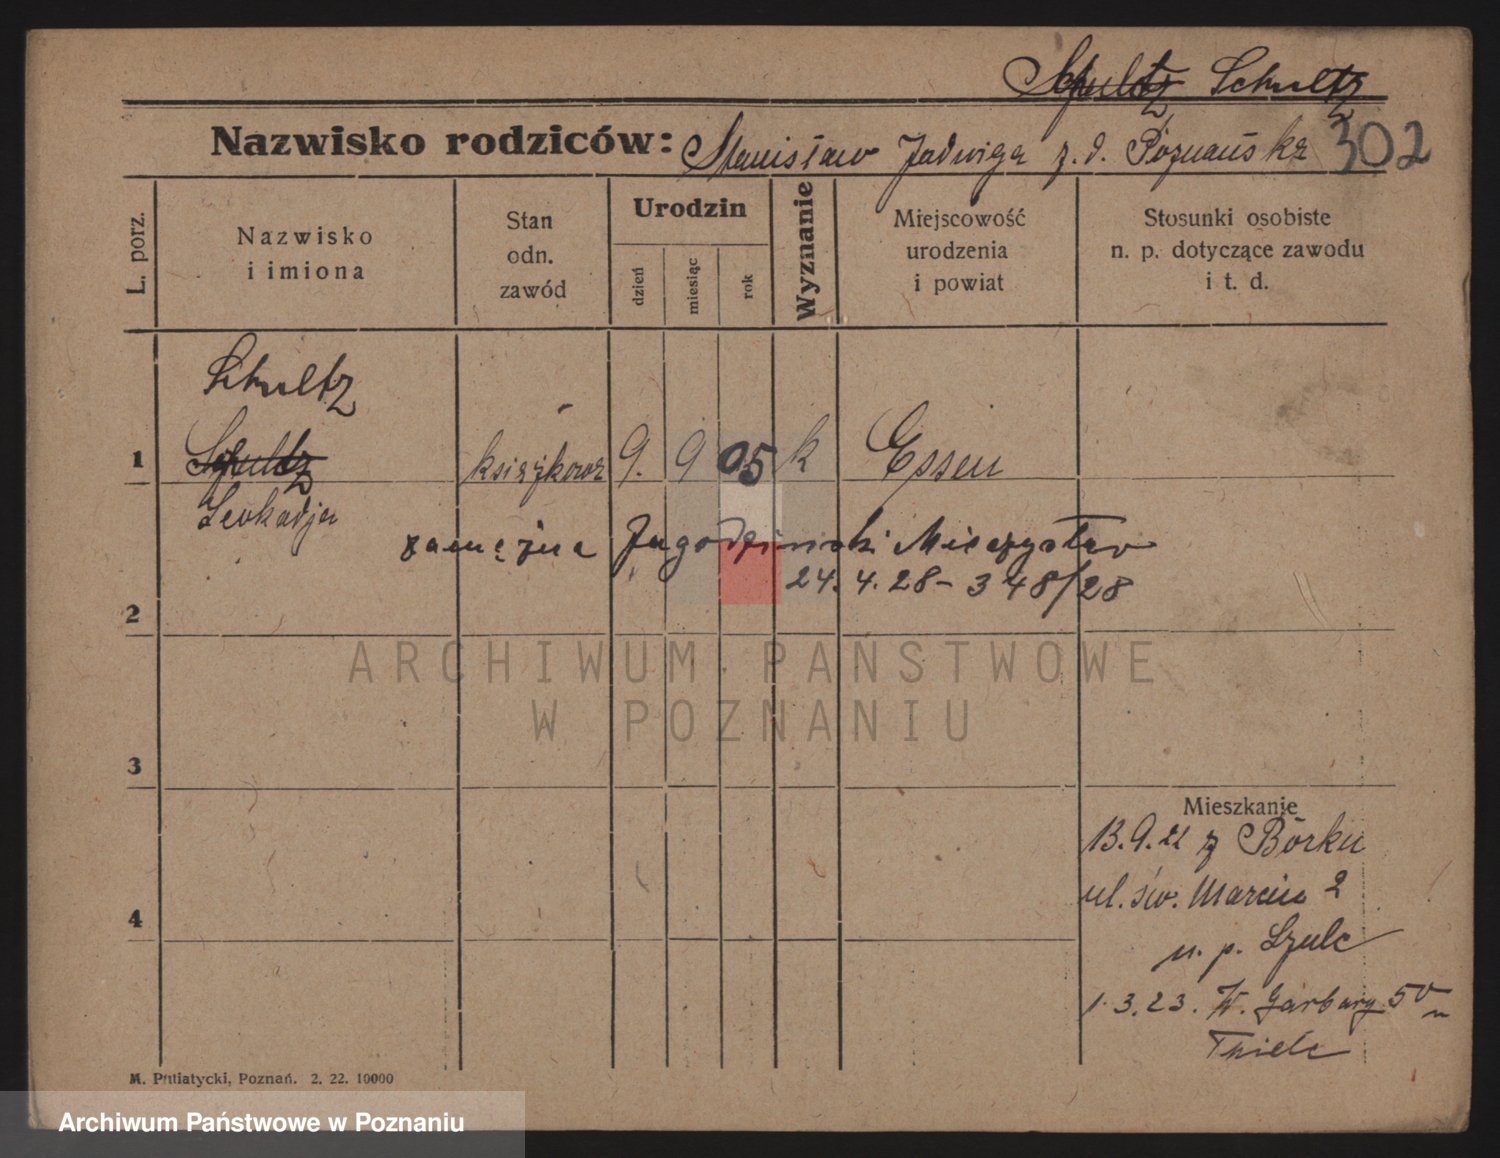 Schultz Schultz
Nazwisko rodziców: Stanisław Jadwiga z.d. Poznańska 302
L. porz.
Nazwisko
i imiona
Stan
odn.
zawód
Urodzin
dzień
miesiąc
rok
Wyznanie
Miejscowość
urodzenia
i powiat
Stosunki osobiste
n. p. dotyczące zawodu
i t. d.
Schultz
1 Schultz książkowa 9. 9 05 k Essen
Leokadja
zamężna Jagodziński Mieczysław
24. 4. 28 – 348/28
2
3
Mieszkanie
13.9.21 z Borku
ul. św. Marcin 2
4
u. p. Szulc
1.3.23. W. Garbary 50
Thiele
M. Putiatycki, Poznań. 2. 22. 10000
ARCHIWUM PAŃSTWOWE
W POZNANIU
Archiwum Państwowe w Poznaniu